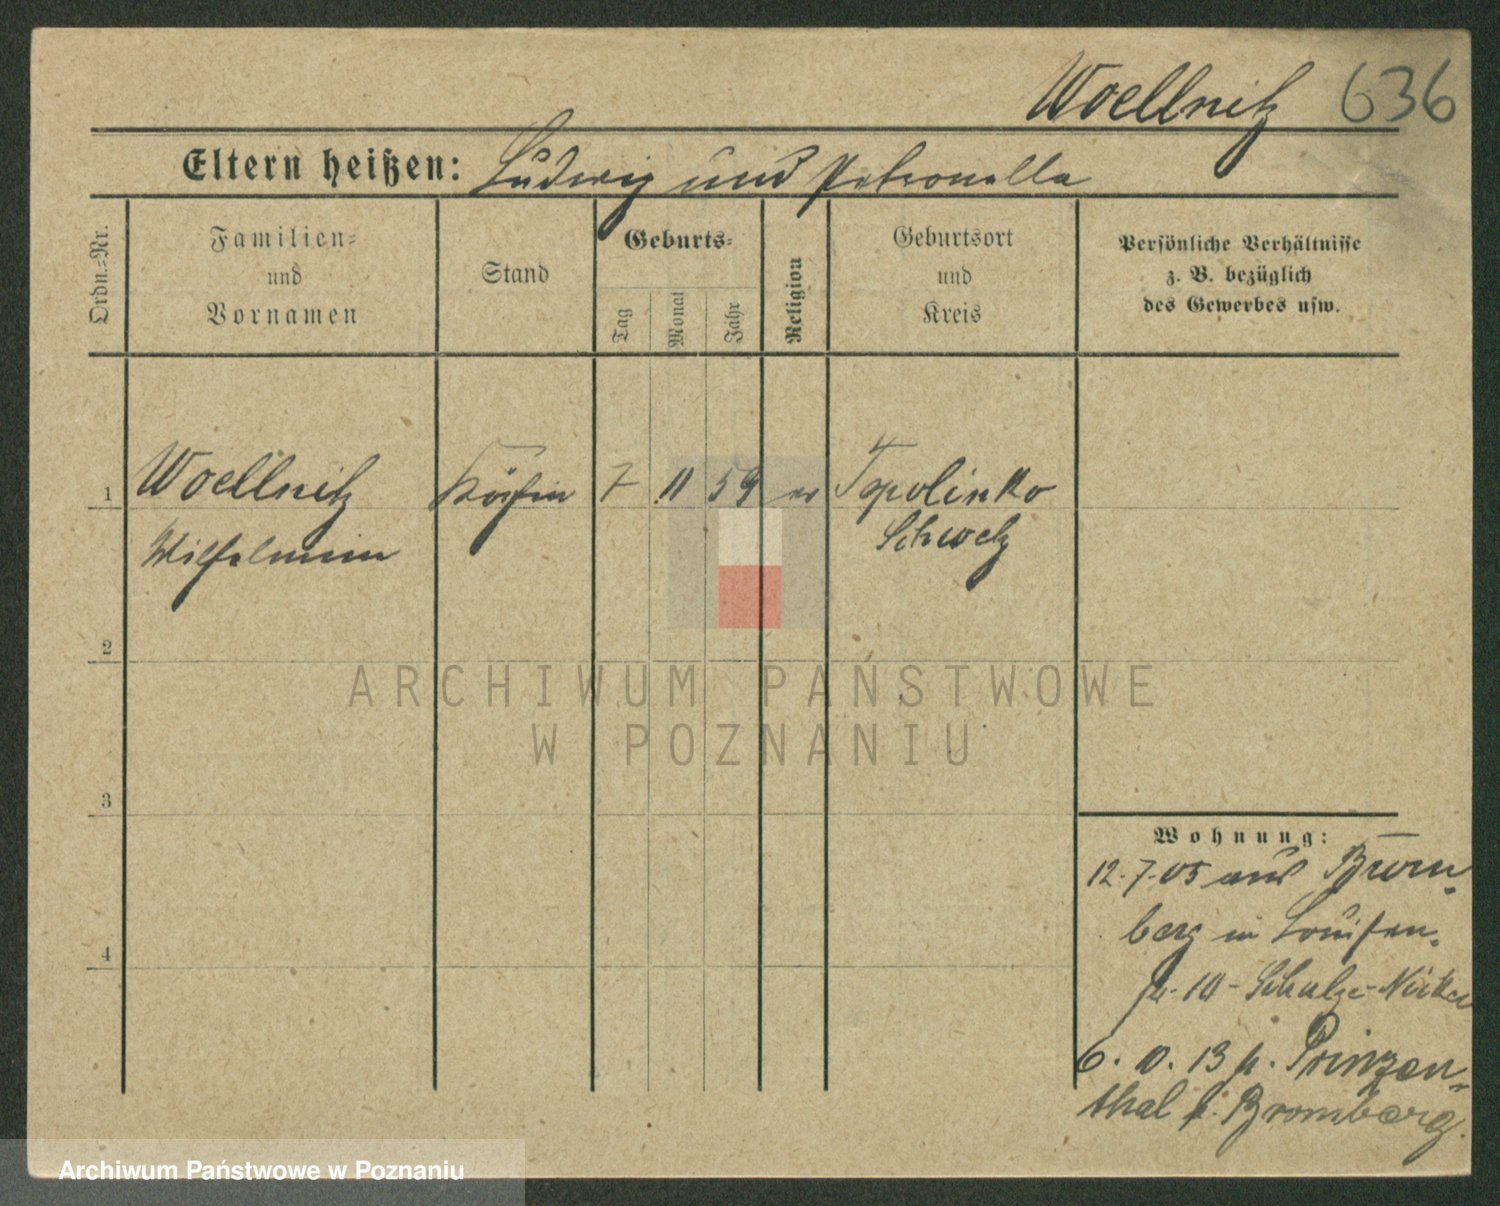 Woellnitz 636
Eltern heißen: Ludwig und Petronella
Ordn.-Nr.
Familien-
und
Vornamen
Stand
Geburts-
Tag
Monat
Jahr
Religion
Geburtsort
und
Kreis
Persönliche Verhältnisse
z. B. bezüglich
des Gewerbes usw.
1 Woellnitz Köchin 7 11 59 ev Topolinko
Wilhelmine Schwetz
2
3
4
Wohnung:
12.7.05 aus Brom-
berg in Louisen-
10 - Schulze
6. 13 Prinzen-
thal b. Bromberg.
ARCHIWUM PAŃSTWOWE
W POZNANIU
Archiwum Państwowe w Poznaniu